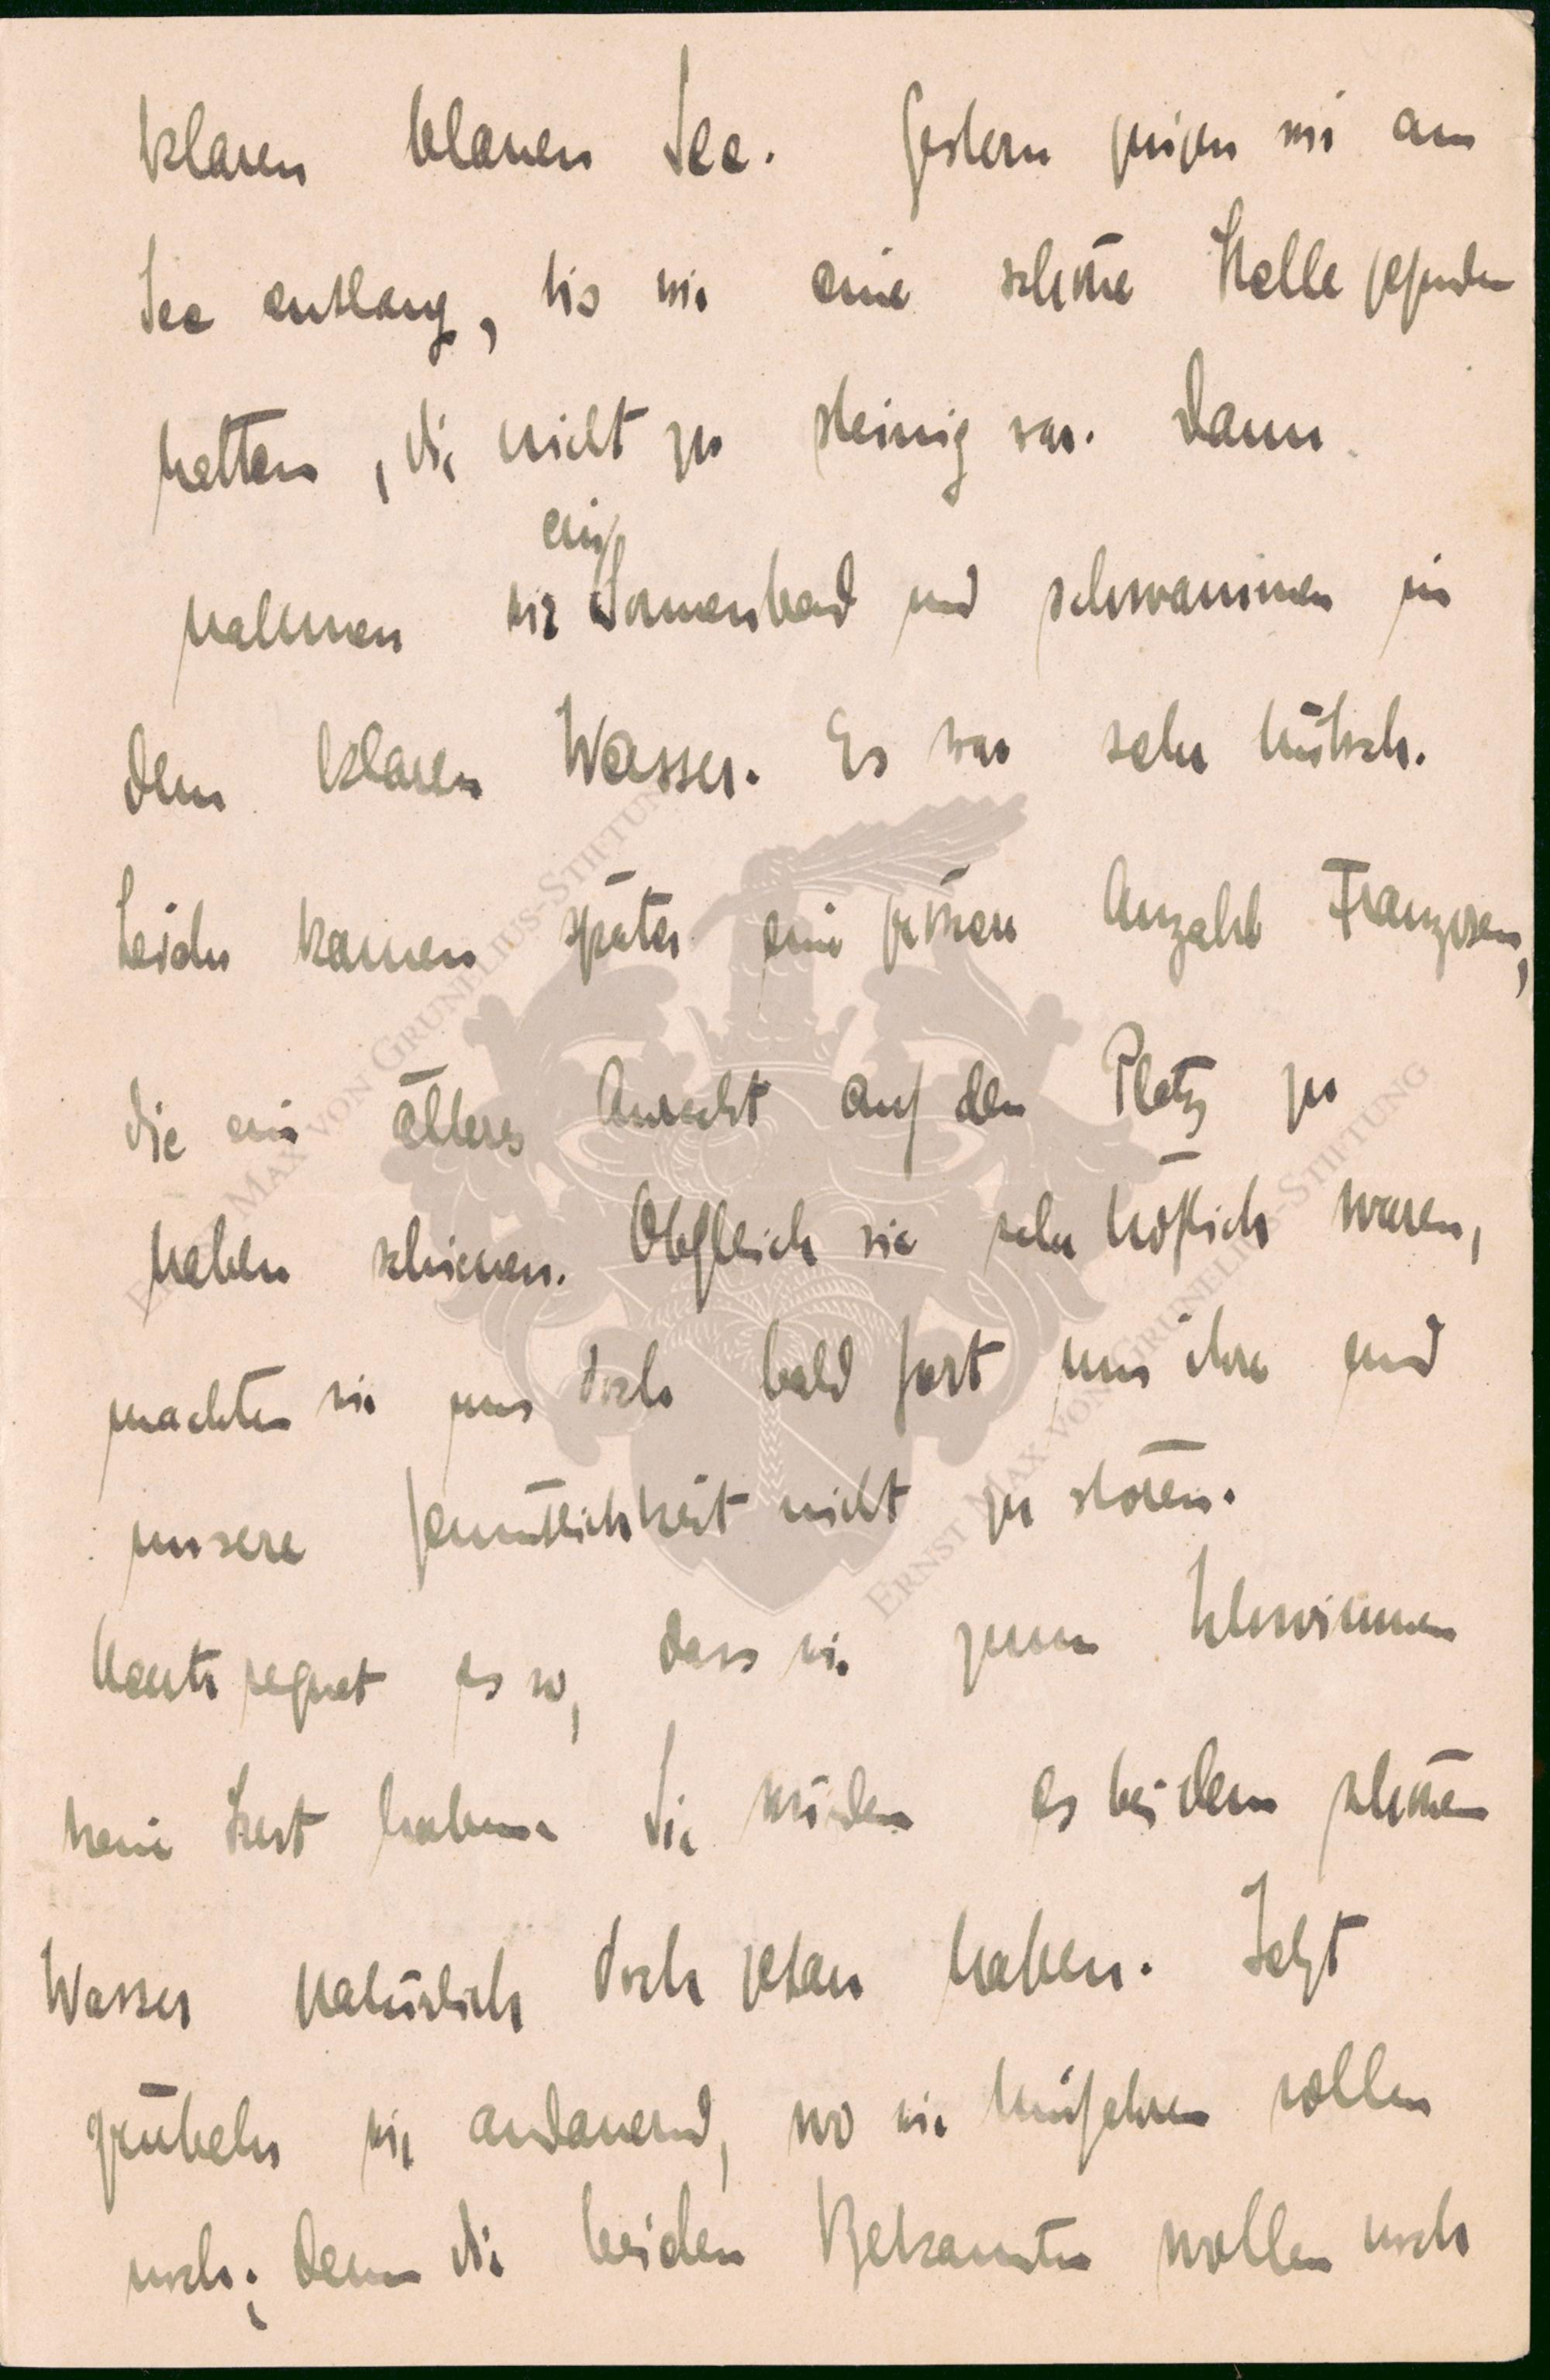 klaren blauen See. Gestern gingen wir am
See entlang, bis wir eine schöne Stelle gefunden
hatten, die nicht zu steinig war. Dann
nahmen wir ein Sonnenbad und schwammen in
dem klaren Wasser. Es war sehr hübsch.
Leider kamen später eine grössere Anzahl Franzosen,
die ein älteres Anrecht auf den Platz zu
haben schienen. Obgleich sie sehr höflich waren,
machten wir uns doch bald fort um ihre und
unsere Gemütlichkeit nicht zu stören.
Heute regnet es so, dass wir zum Schwimmen
keine Lust haben. Sie würden es bei dem schönen
Wasser natürlich doch getan haben. Jetzt
grübeln wir andauernd, wo wir hinfahren wollen
noch; denn die beiden Bekannten wollen noch
ERNST MAX VON GRUNELIUS-STIFTUNG
ERNST MAX VON GRUNELIUS-STIFTUNG